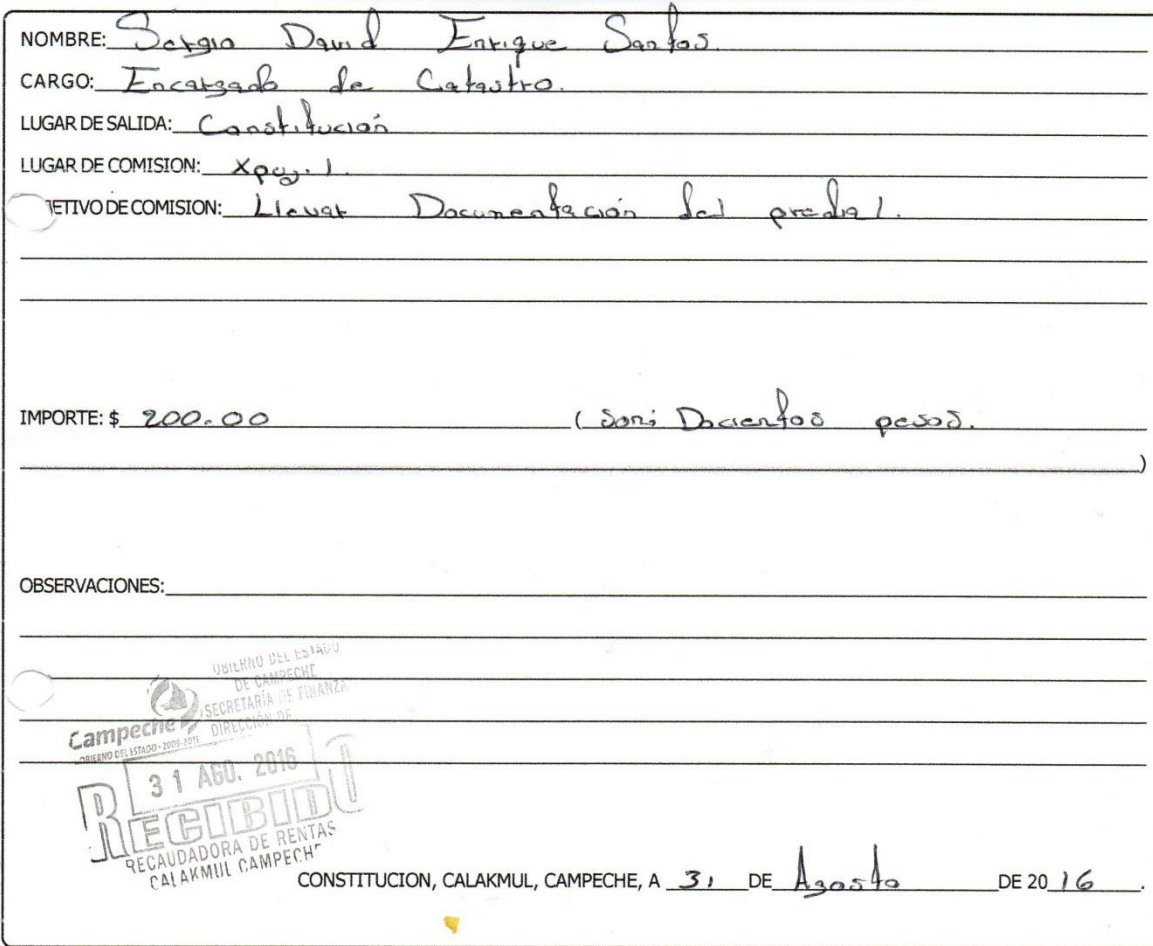 NOMBRE: Sergio David Enrique Santos.
CARGO: Encargado de Catastro.
LUGAR DE SALIDA: Constitución
LUGAR DE COMISION: Xpuj.l.
JETIVO DE COMISION: Llevar Documentación del predial.
IMPORTE: $ 200.00 (Son: Docientos pesos.
)
OBSERVACIONES:
OBIERNO DEL ESTADO
DE CAMPECHE
SECRETARÍA DE FINANZA
DIRECCIÓN DE
Campeche
GOBIERNO DEL ESTADO - 2009-2015
31 AGO. 2016
RECIBIDO
RECAUDADORA DE RENTAS
CALAKMUL CAMPECHE
CONSTITUCION, CALAKMUL, CAMPECHE, A 31 DE Agosto DE 2016.